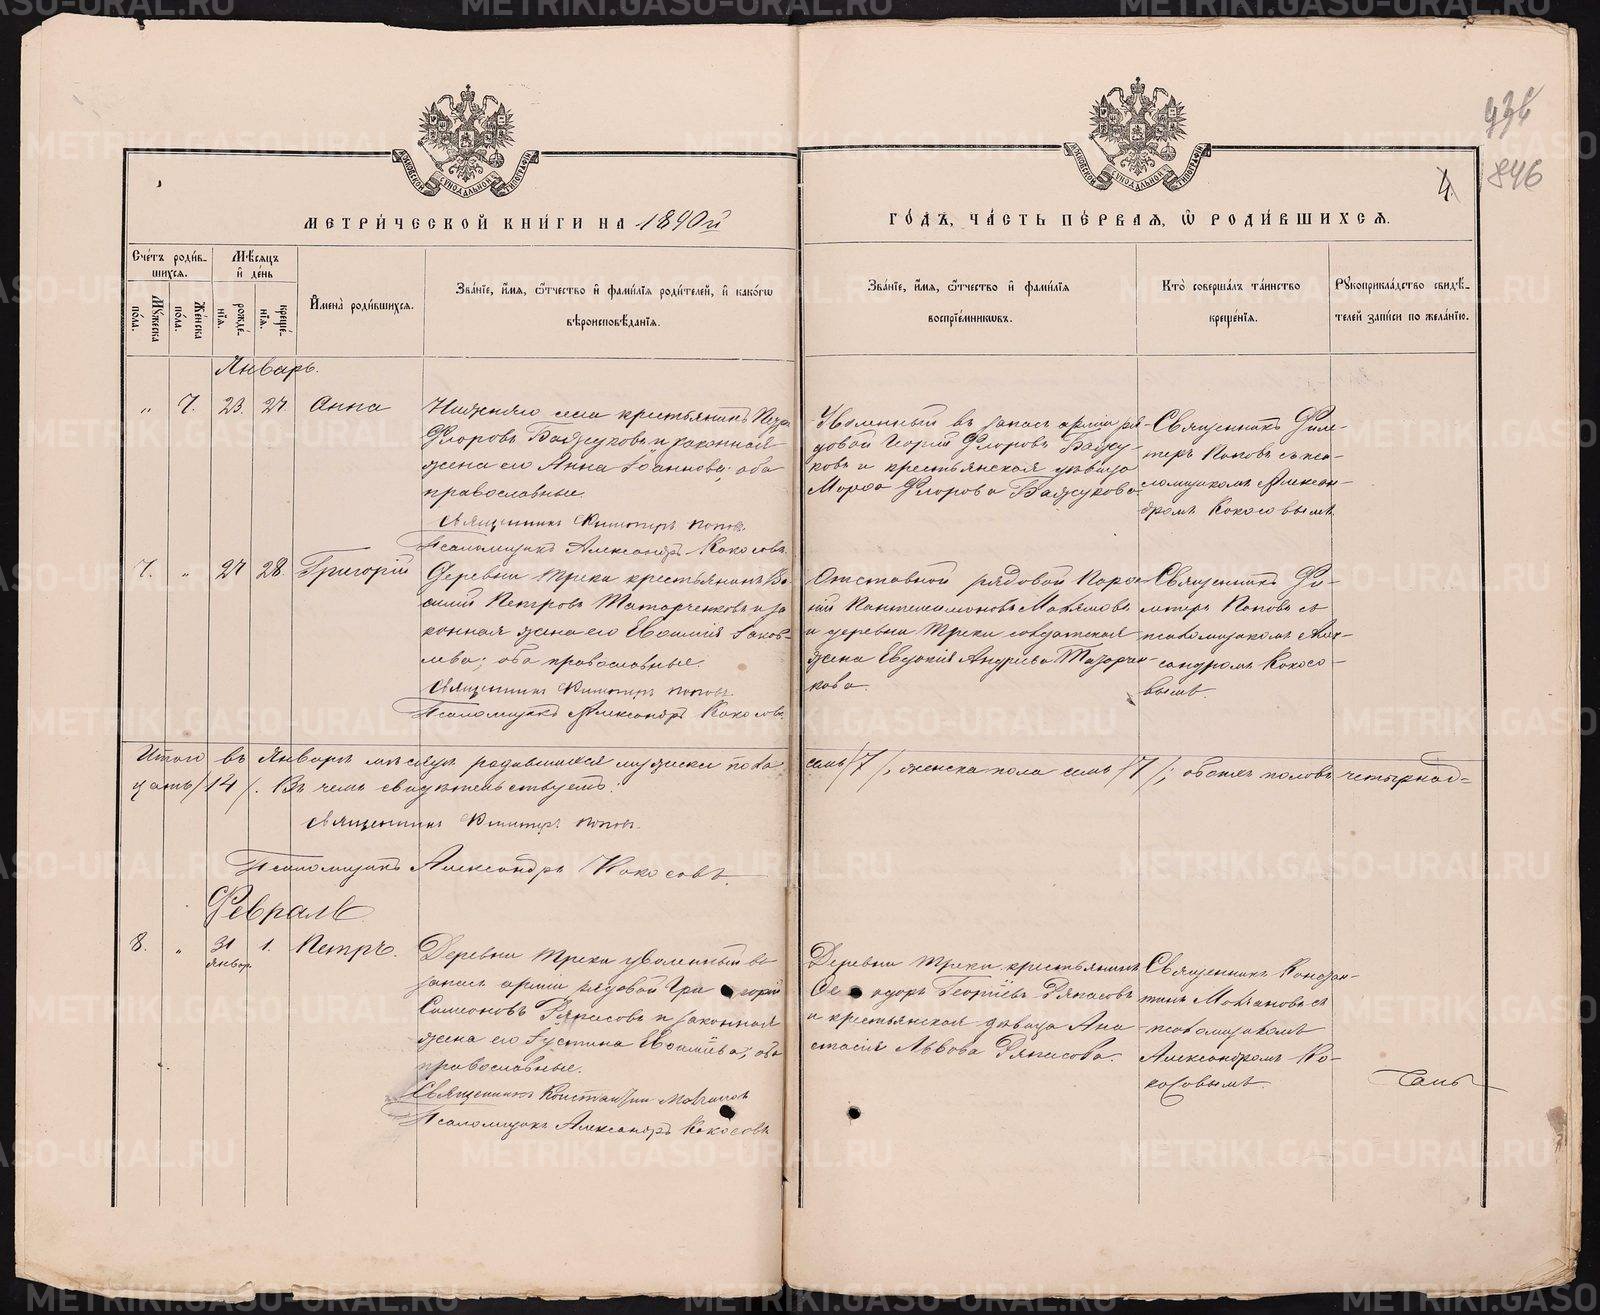 434
846
4
МОСКОВСКОЙ СѴНОДАЛЬНОЙ ТИПОГРАФІИ
МОСКОВСКОЙ СѴНОДАЛЬНОЙ ТИПОГРАФІИ
МЕТРИ́ЧЕСКОЙ КНИ́ГИ НА 1890й
ГО́ДЪ, ЧА́СТЬ ПЕ́РВАЯ, Ѽ РОДИ́ВШИХСЯ.
Сче́тъ роди́в-
шихся.
Мꙋжеска по́ла.
Же́нска по́ла.
Мѣ́сяцъ
и҆ де́нь
рожде́нїя.
креще́нїя.
И҆мена̀ роди́вшихся.
Зва́нїе, и҆́мя, ѻ҆́тчество и҆ фамі́лїя роди́телей, и҆ како́гѡ
вѣроисповѣ́данїя.
Зва́нїе, и҆́мя, ѻ҆́тчество и҆ фамі́лїя
воспрїе́мникѡвъ.
Кто̀ соверша́лъ та́инство
креще́нїя.
Рꙋкоприкла́дство свидѣ́-
телей за́писи по жела́нїю.
Январь.
" 7. 23. 27. Анна
Нижняго села крестьянинъ
Флоровъ Бажуковъ и законная
жена его Анна Іоаннова; оба
православные.
Священникъ Димитрій Поповъ.
Псаломщикъ Александръ Кокосовъ.
Уволенный въ запасъ арміи ря-
довой Георгій Флоровъ Бажу-
ковъ и крестьянская дѣвица
Марѳа Флорова Бажукова.
Священникъ Дим-
итрій Поповъ съ пса-
ломщикомъ Алексан-
дромъ Кокосовымъ.
7. " 27 28. Григорій
Деревни Треки крестьянинъ Ва-
силій Петровъ Татарченковъ и за-
конная жена его Евѳимія Іаков-
лева; оба православные.
Священникъ Димитрій Поповъ.
Псаломщикъ Александръ Кокосовъ.
Отставной рядовой
Пантелеимоновъ
и деревни Треки солдатская
жена Евдокія Андреева Татарчен-
кова.
Священникъ Ди-
митрій Поповъ съ
псаломщикомъ Алек-
сандромъ Кокосо-
вымъ.
Итого въ Январѣ мѣсяцѣ родившихся мужеска пола
семь /7/, женска пола семь /7/; обоихъ половъ четырнад=
цать /14/. Въ чемъ свидѣтельствуетъ:
Священникъ Димитрій Поповъ.
Псаломщикъ Александръ Кокосовъ.
Февраль
8. " 31 Январ. 1. Петръ.
Деревни Треки уволенный въ
запасъ арміи рядовой Григорій
Симеоновъ Ряписовъ и законная
жена его Іустина Евѳиміева; оба
православные.
Священникъ Константинъ Молчановъ
Псаломщикъ Александръ Кокосовъ
Деревни Треки крестьянинъ
Ѳеодоръ Георгіевъ Ряписовъ
и крестьянская дѣвица Ана-
стасія Львова Ряписова.
Священникъ Констан-
тинъ Молчановъ съ
псаломщикомъ
Александромъ Ко-
косовымъ.
METRIKI.GASO-URAL.RU